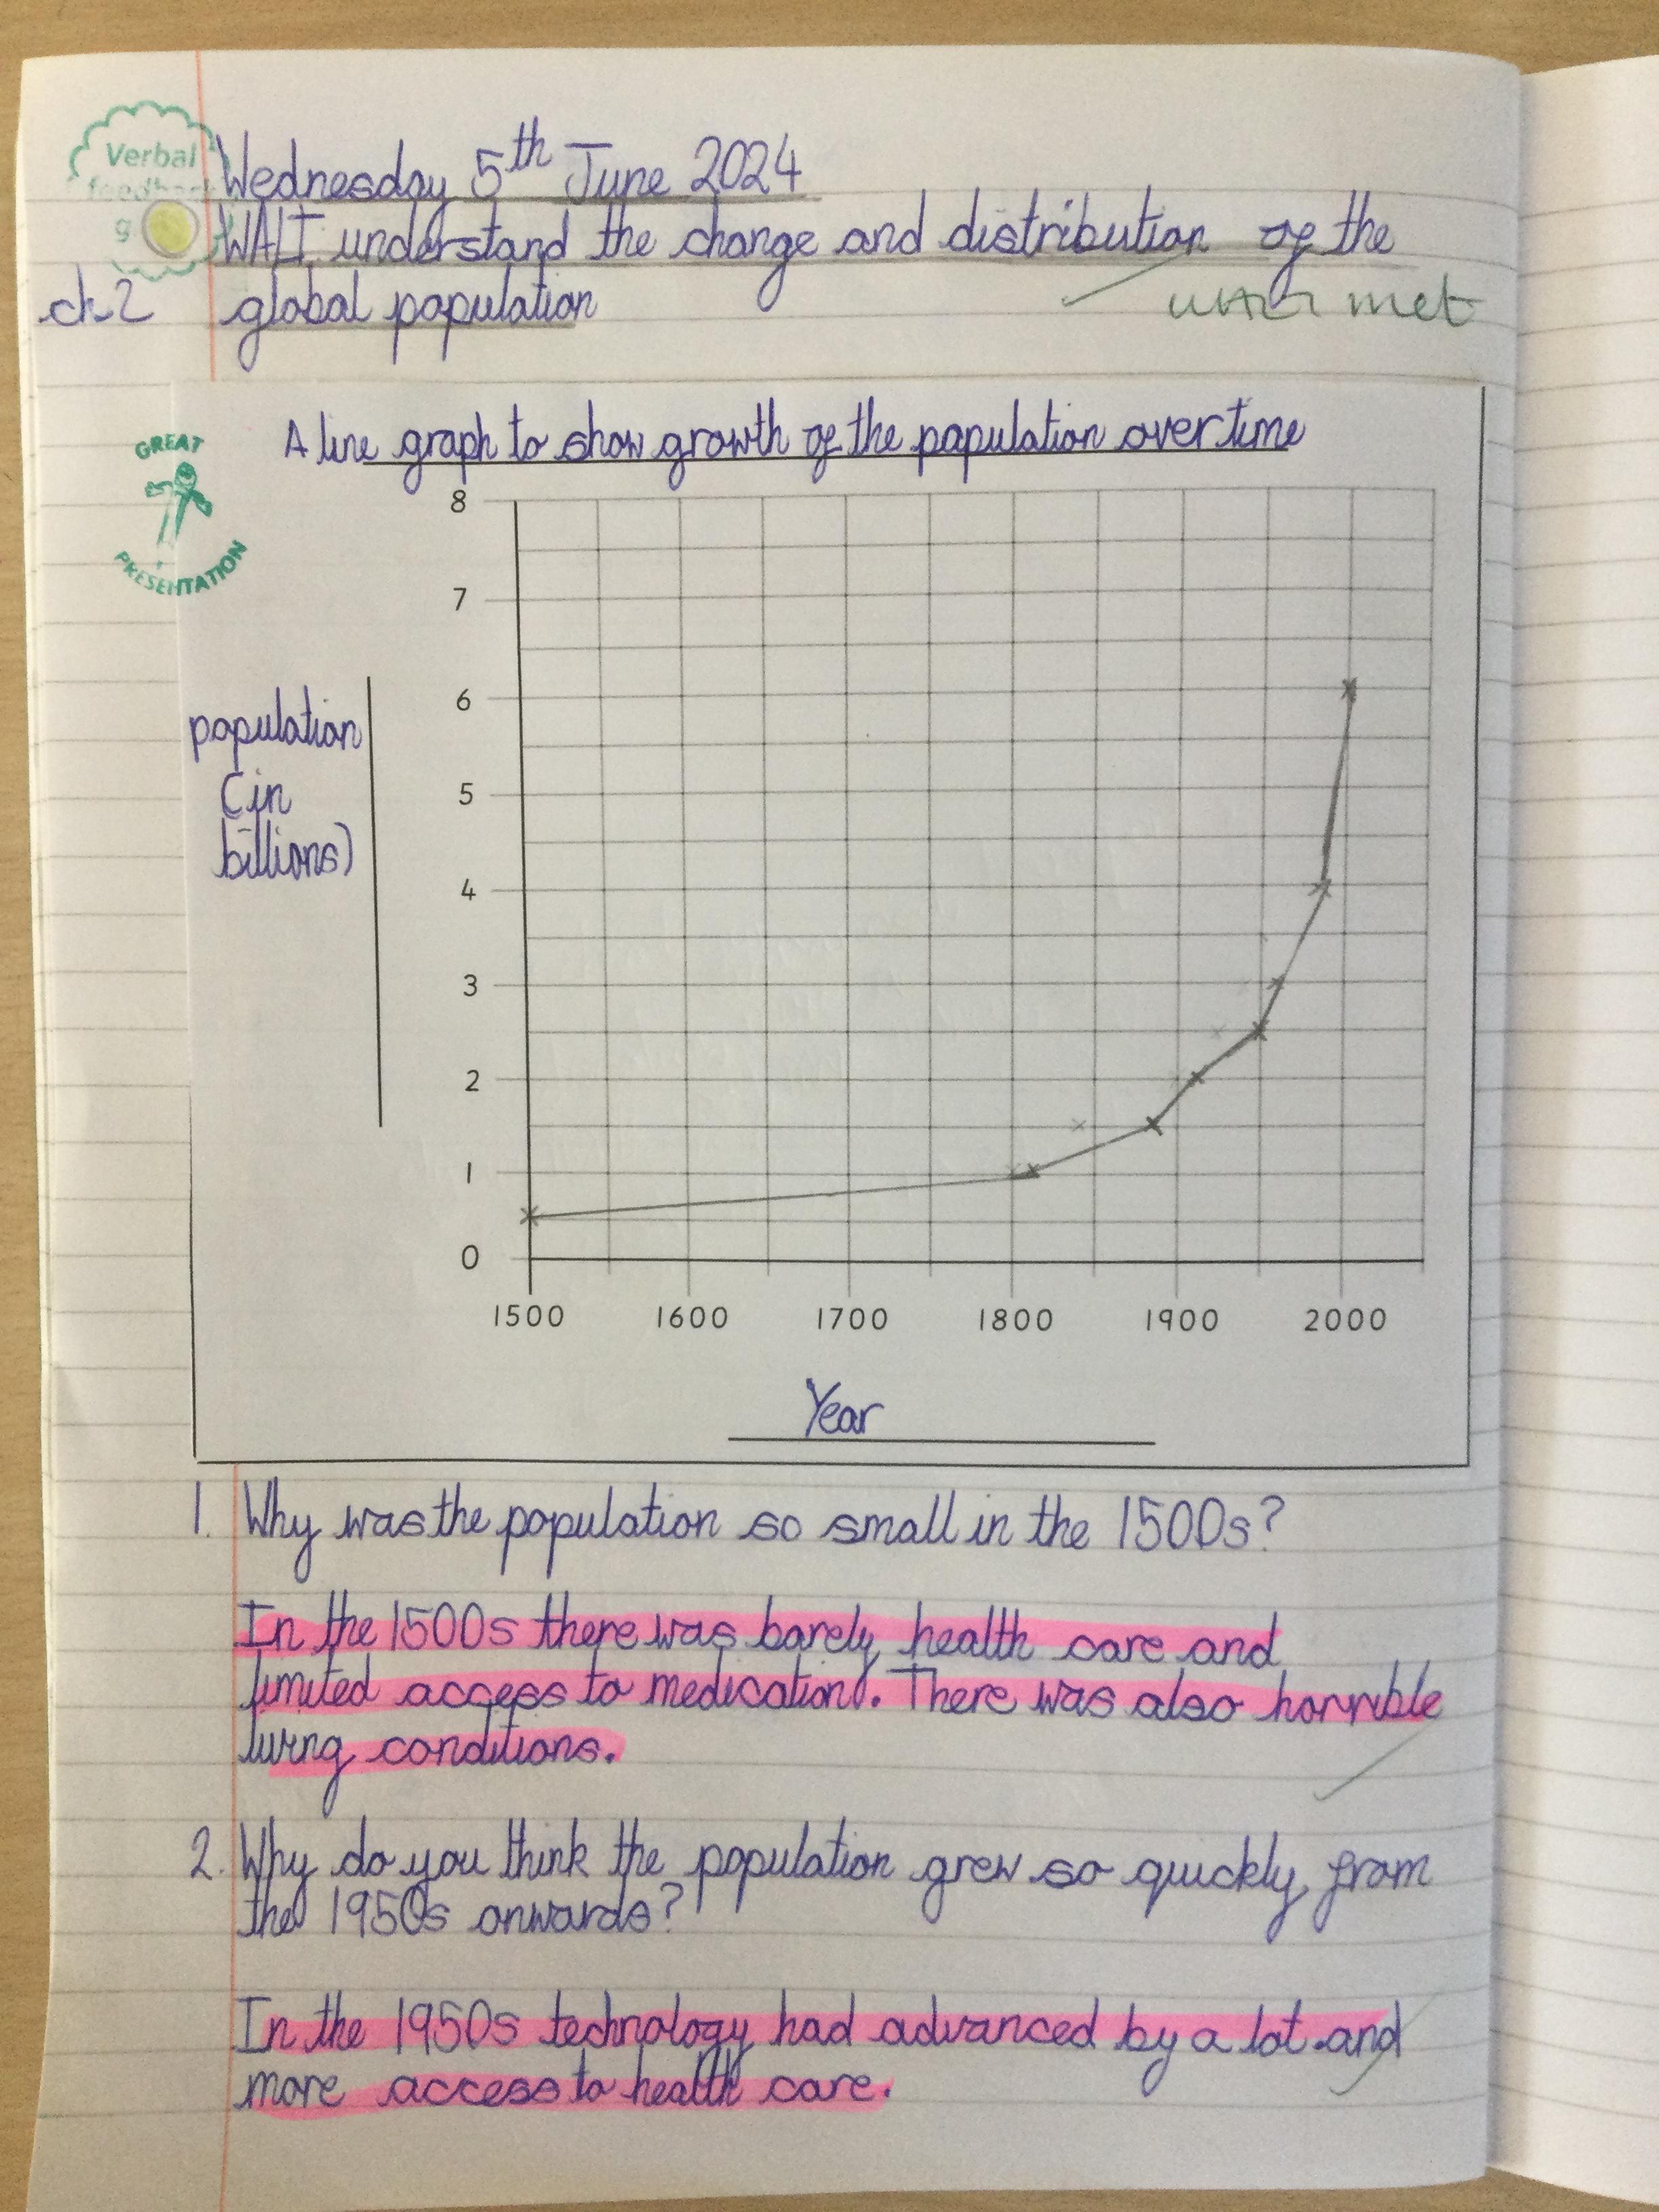 Verbal
feedback
g
Wednesday 5th June 2024
WALT understand the change and distribution of the
ch2 global population
WALT met
GREAT
PRESENTATION
A line graph to show growth of the population over time
8
7
6
5
4
3
2
1
0
population
(in
billions)
1500 1600 1700 1800 1900 2000
Year
1. Why was the population so small in the 1500s?
In the 1500s there was barely health care and
limited access to medication. There was also horrible
living conditions.
2. Why do you think the population grew so quickly from
the 1950s onwards?
In the 1950s technology had advanced by a lot and
more access to health care.